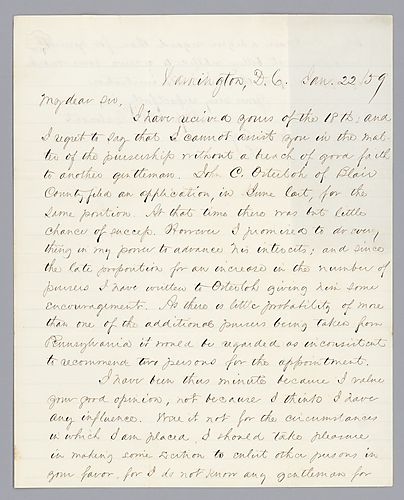 Washington, D.C. Jan. 22/59
My dear Sir,
I have received yours of the 18th; and
I regret to say that I cannot assist you in the mat-
ter of the pursership without a breach of good faith
to another gentleman. John C. Osterloh of Blair
County filed an application, in June last, for the
same position. At that time there was but little
chance of success. However I promised to do every
thing in my power to advance his interests; and since
the late proposition for an increase in the number of
pursers I have written to Osterloh giving him some
encouragement. As there is little probability of more
than one of the additional pursers being taken from
Pennsylvania it would be regarded as inconsistent
to recommend two persons for the appointment.
I have been thus minute because I value
your good opinion, not because I think I have
any influence. Were it not for the circumstances
in which I am placed, I should take pleasure
in making some exertion to enlist other persons in
your favor, for I do not know any gentleman for